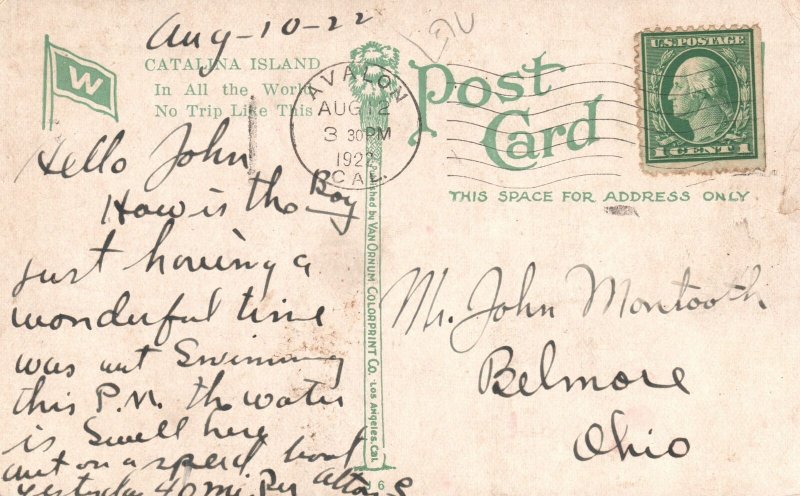 Aug-10-22
W
CATALINA ISLAND
In All the World
No Trip Like This
Hello John
How is the Boy
just having a
wonderful time
was out Swimming
this P.M. the water
is Swell here
out on a speed boat
yesterday 40 mi. Per
AVALON
AUG 12
3 30 PM
1922
CAL.
Published by VAN ORNUM COLORPRINT CO. LOS ANGELES, CAL.
16
Post
Card
U.S. POSTAGE
1 CENT 1
THIS SPACE FOR ADDRESS ONLY
Mr. John Montooth
Belmore
Ohio